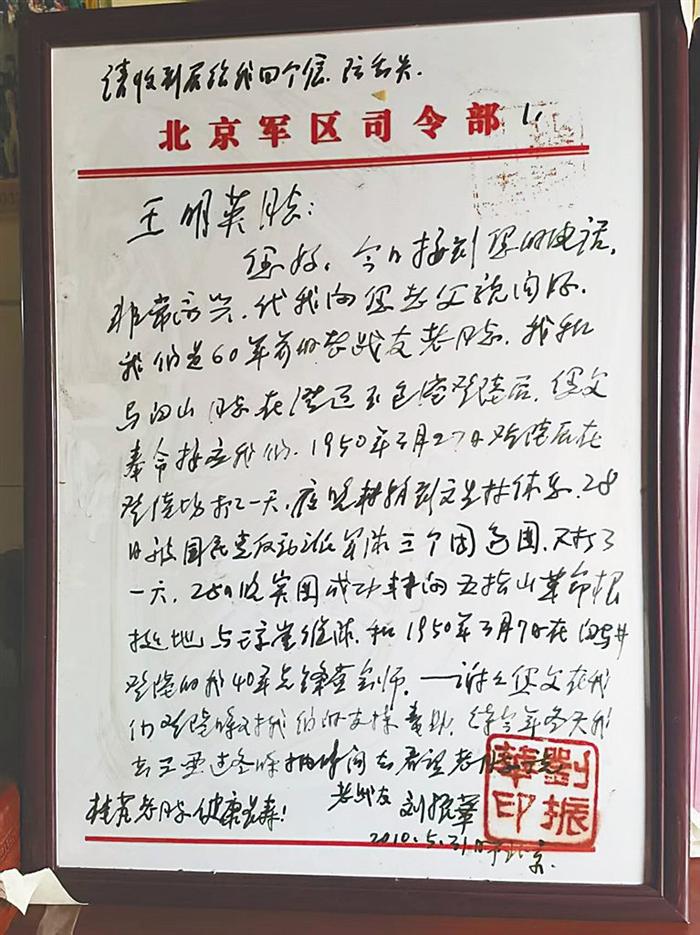 请收到后给我回个信.防丢失.
北京军区司令部 1.
王明英同志:
您好,今日接到您的电话,
非常高兴,代我向您老父亲问好.
我们是60年前的老战友老同志.我和
马白山同志在澄迈玉包港登陆后,您父
奉命接应我们.1950年3月27日登陆后在
登陆场打了一天,
日被国民党反动派军队三个团包围.又打了
一天,28日晚突围成功转向五指山革命根
据地与琼崖纵队.和1950年3月7日在
登陆的我40军先锋营会师.一谢谢您父在我
们登陆时对我们的支援帮助.待今年冬天我
去三亚过冬时抽时间去看望老同志
桂 老同志健康长寿!
老战友 刘振华
2010.5.31日于北京.
劉振華印